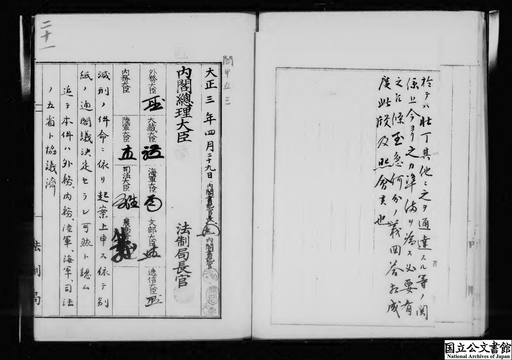 於テハ壮丁其他ニ之ヲ通達スル等ノ関
係上今ヨリ之カ準備ノ為メ必要有
之候至急何分ノ義回答相成
度此段及照会候也
二十一
閣甲五三
大正三年四月二十九日
内閣書記官長
内閣書記官
内閣總理大臣
法制局長官
外務大臣
大蔵大臣
海軍大臣
文部大臣
逓信大臣
内務大臣
陸軍大臣
司法大臣
減刑ノ件命ニ依リ起案上申ス依テ別
紙ノ通閣議決定セラレ可然ト認ム
追テ本件ハ外務、内務、陸軍、海軍、司法
ノ五省ト協議済
法制局
国立公文書館
National Archives of Japan